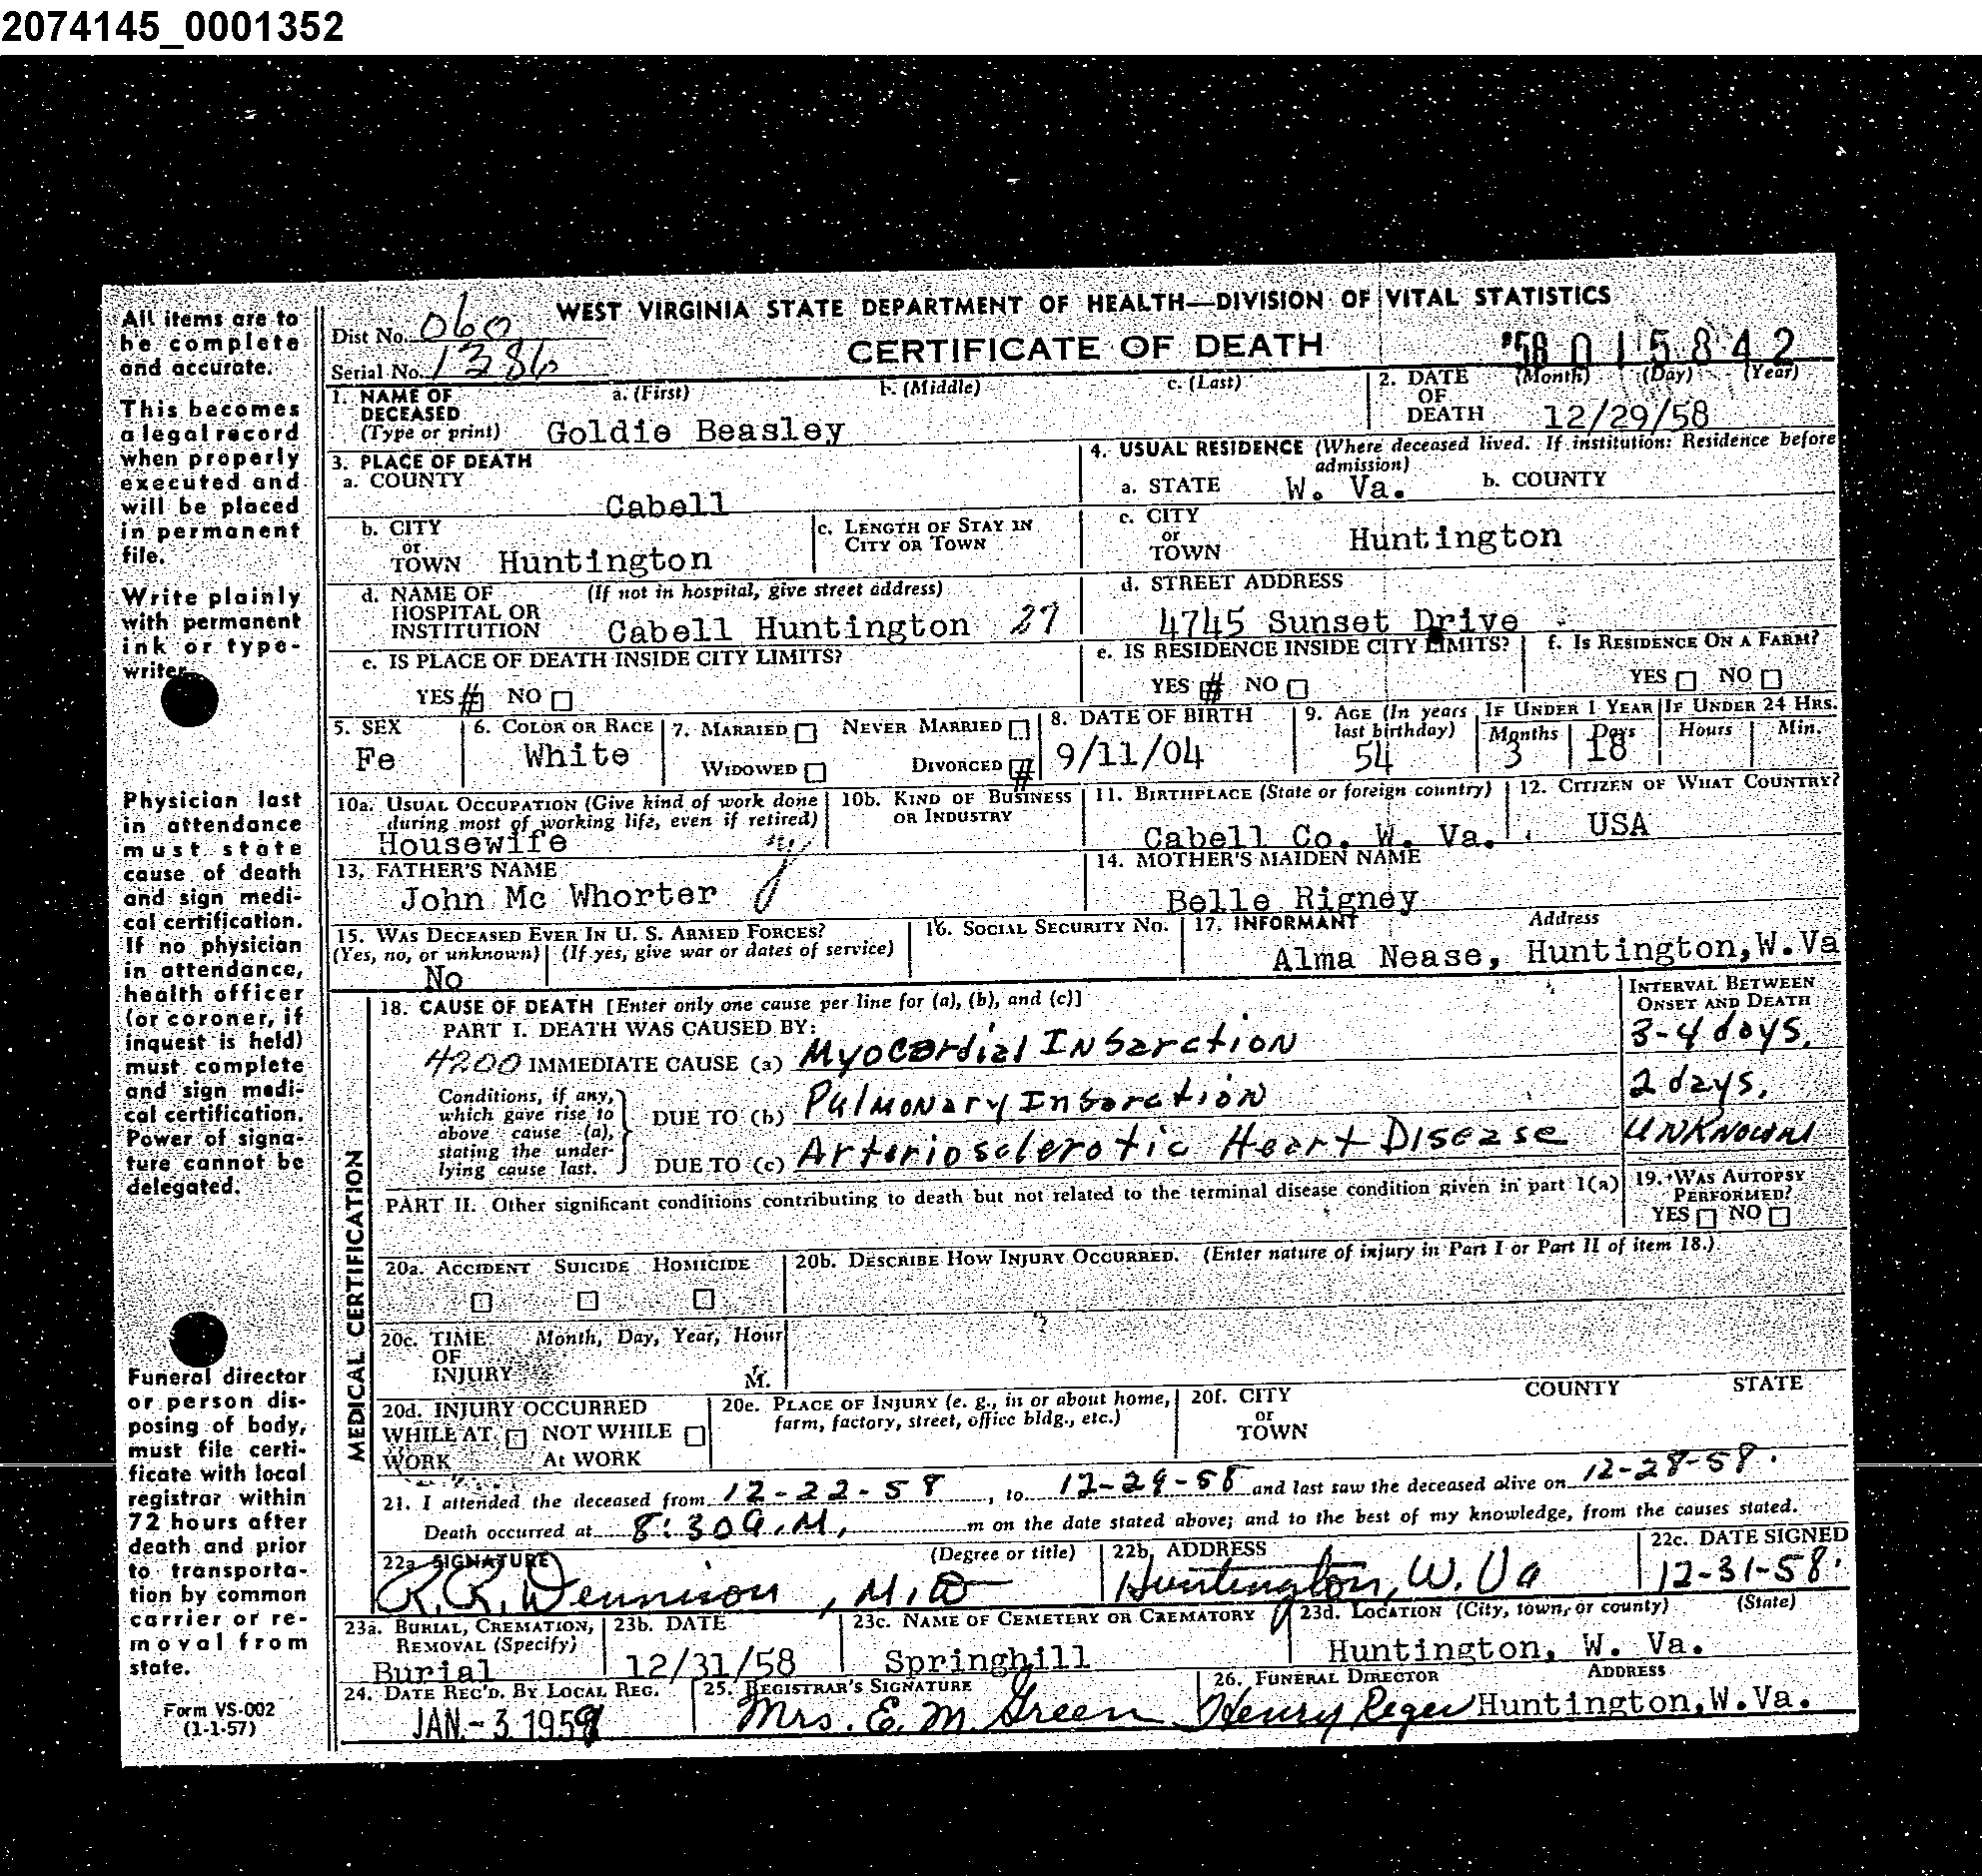 2074145_0001352
All items are to be complete and accurate.
This becomes a legal record when properly executed and will be placed in permanent file.
Write plainly with permanent ink or typewriter.
Physician last in attendance must state cause of death and sign medical certification. If no physician in attendance, health officer (or coroner, if inquest is held) must complete and sign medical certification. Power of signature cannot be delegated.
Funeral director or person disposing of body, must file certificate with local registrar within 72 hours after death and prior to transportation by common carrier or removal from state.
Form VS-002
(1-1-57)
WEST VIRGINIA STATE DEPARTMENT OF HEALTH—DIVISION OF VITAL STATISTICS
Dist No. 060
CERTIFICATE OF DEATH
'58 015842
Serial No. 1386
1. NAME OF DECEASED (Type or print) a. (First) b. (Middle) c. (Last)
Goldie Beasley
2. DATE OF DEATH (Month) (Day) (Year)
12/29/58
3. PLACE OF DEATH
a. COUNTY
Cabell
4. USUAL RESIDENCE (Where deceased lived. If institution: Residence before admission)
a. STATE W. Va. b. COUNTY
b. CITY or TOWN Huntington
c. LENGTH OF STAY IN CITY OR TOWN
c. CITY or TOWN Huntington
d. NAME OF HOSPITAL OR INSTITUTION (If not in hospital, give street address)
Cabell Huntington 27
d. STREET ADDRESS
4745 Sunset Drive
e. IS PLACE OF DEATH INSIDE CITY LIMITS?
YES # NO
e. IS RESIDENCE INSIDE CITY LIMITS?
YES # NO
f. IS RESIDENCE ON A FARM?
YES NO
5. SEX
Fe
6. COLOR OR RACE
White
7. MARRIED NEVER MARRIED
WIDOWED DIVORCED #
8. DATE OF BIRTH
9/11/04
9. AGE (In years last birthday)
54
IF UNDER 1 YEAR
Months Days
3 18
IF UNDER 24 HRS.
Hours Min.
10a. USUAL OCCUPATION (Give kind of work done during most of working life, even if retired)
Housewife
10b. KIND OF BUSINESS OR INDUSTRY
11. BIRTHPLACE (State or foreign country)
Cabell Co. W. Va.
12. CITIZEN OF WHAT COUNTRY?
USA
13. FATHER'S NAME
John Mc Whorter
14. MOTHER'S MAIDEN NAME
Belle Rigney
15. WAS DECEASED EVER IN U. S. ARMED FORCES?
(Yes, no, or unknown) (If yes, give war or dates of service)
No
16. SOCIAL SECURITY NO.
17. INFORMANT Address
Alma Nease, Huntington, W.Va
MEDICAL CERTIFICATION
18. CAUSE OF DEATH [Enter only one cause per line for (a), (b), and (c)]
INTERVAL BETWEEN ONSET AND DEATH
PART I. DEATH WAS CAUSED BY:
4200 IMMEDIATE CAUSE (a) Myocardial Insarction 3-4 days.
Conditions, if any, which gave rise to above cause (a), stating the underlying cause last.
DUE TO (b) Pulmonary Insarction 2 days.
DUE TO (c) Arteriosclerotic Heart Disease Unknown
PART II. Other significant conditions contributing to death but not related to the terminal disease condition given in part I(a)
19. WAS AUTOPSY PERFORMED?
YES NO
20a. ACCIDENT SUICIDE HOMICIDE
20b. DESCRIBE HOW INJURY OCCURRED. (Enter nature of injury in Part I or Part II of item 18.)
20c. TIME OF INJURY Month, Day, Year, Hour
M.
20d. INJURY OCCURRED
WHILE AT WORK NOT WHILE At WORK
20e. PLACE OF INJURY (e. g., in or about home, farm, factory, street, office bldg., etc.)
20f. CITY or TOWN COUNTY STATE
21. I attended the deceased from 12-22-58, to 12-29-58 and last saw the deceased alive on 12-28-58.
Death occurred at 8:30 a.m. m on the date stated above; and to the best of my knowledge, from the causes stated.
22a. SIGNATURE (Degree or title)
R. R. Dennison, M.D
22b. ADDRESS
Huntington, W. Va
22c. DATE SIGNED
12-31-58.
23a. BURIAL, CREMATION, REMOVAL (Specify)
Burial
23b. DATE
12/31/58
23c. NAME OF CEMETERY OR CREMATORY
Springhill
23d. LOCATION (City, town, or county) (State)
Huntington, W. Va.
24. DATE REC'D. BY LOCAL REG.
JAN - 3 1959
25. REGISTRAR'S SIGNATURE
Mrs. E. M. Green
26. FUNERAL DIRECTOR ADDRESS
Henry Reger Huntington, W.Va.